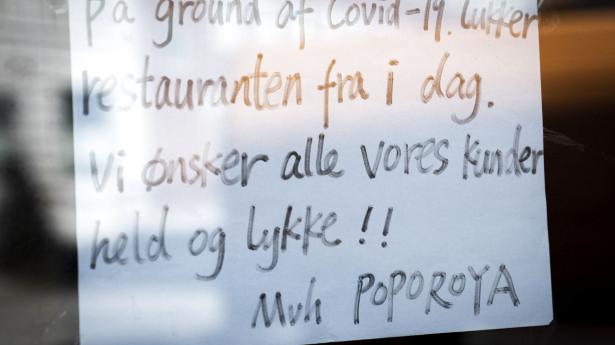 På ground af Covid-19. lukker
restauranten fra i dag.
Vi ønsker alle vores kunder
held og lykke !!
Mvh POPOROYA